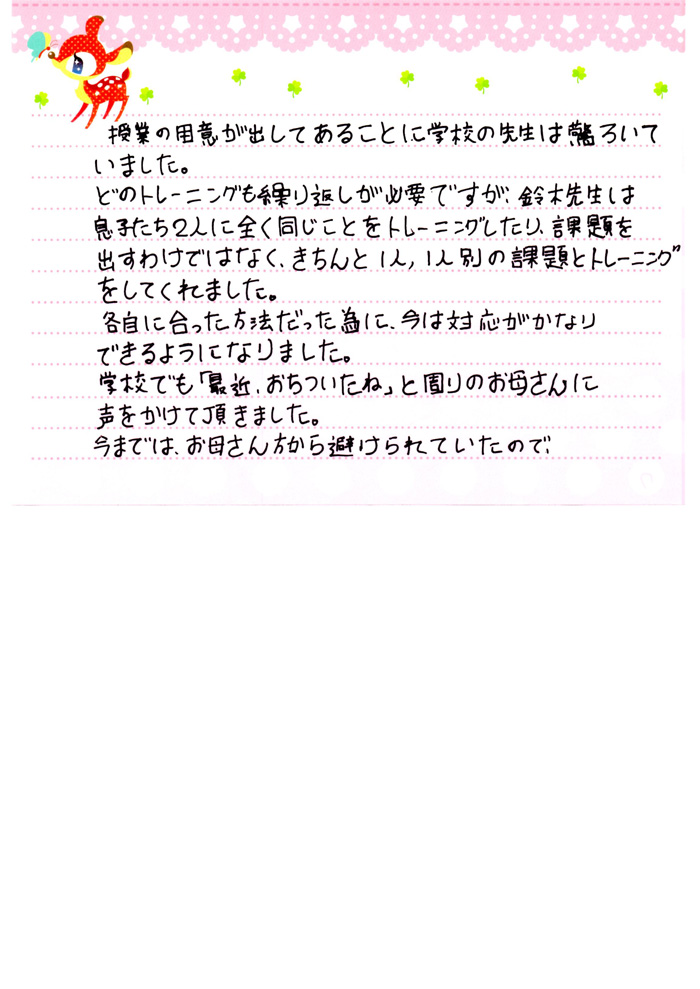 授業の用意が出してあることに学校の先生は驚ろいて
いました。
どのトレーニングも繰り返しが必要ですが、鈴木先生は
息子たち2人に全く同じことをトレーニングしたり、課題を
出すわけではなく、きちんと1人,1人別の課題とトレーニング
をしてくれました。
各自に合った方法だった為に、今は対応がかなり
できるようになりました。
学校でも「最近、おちついたね」と周りのお母さんに
声をかけて頂きました。
今までは、お母さん方から避けられていたので、